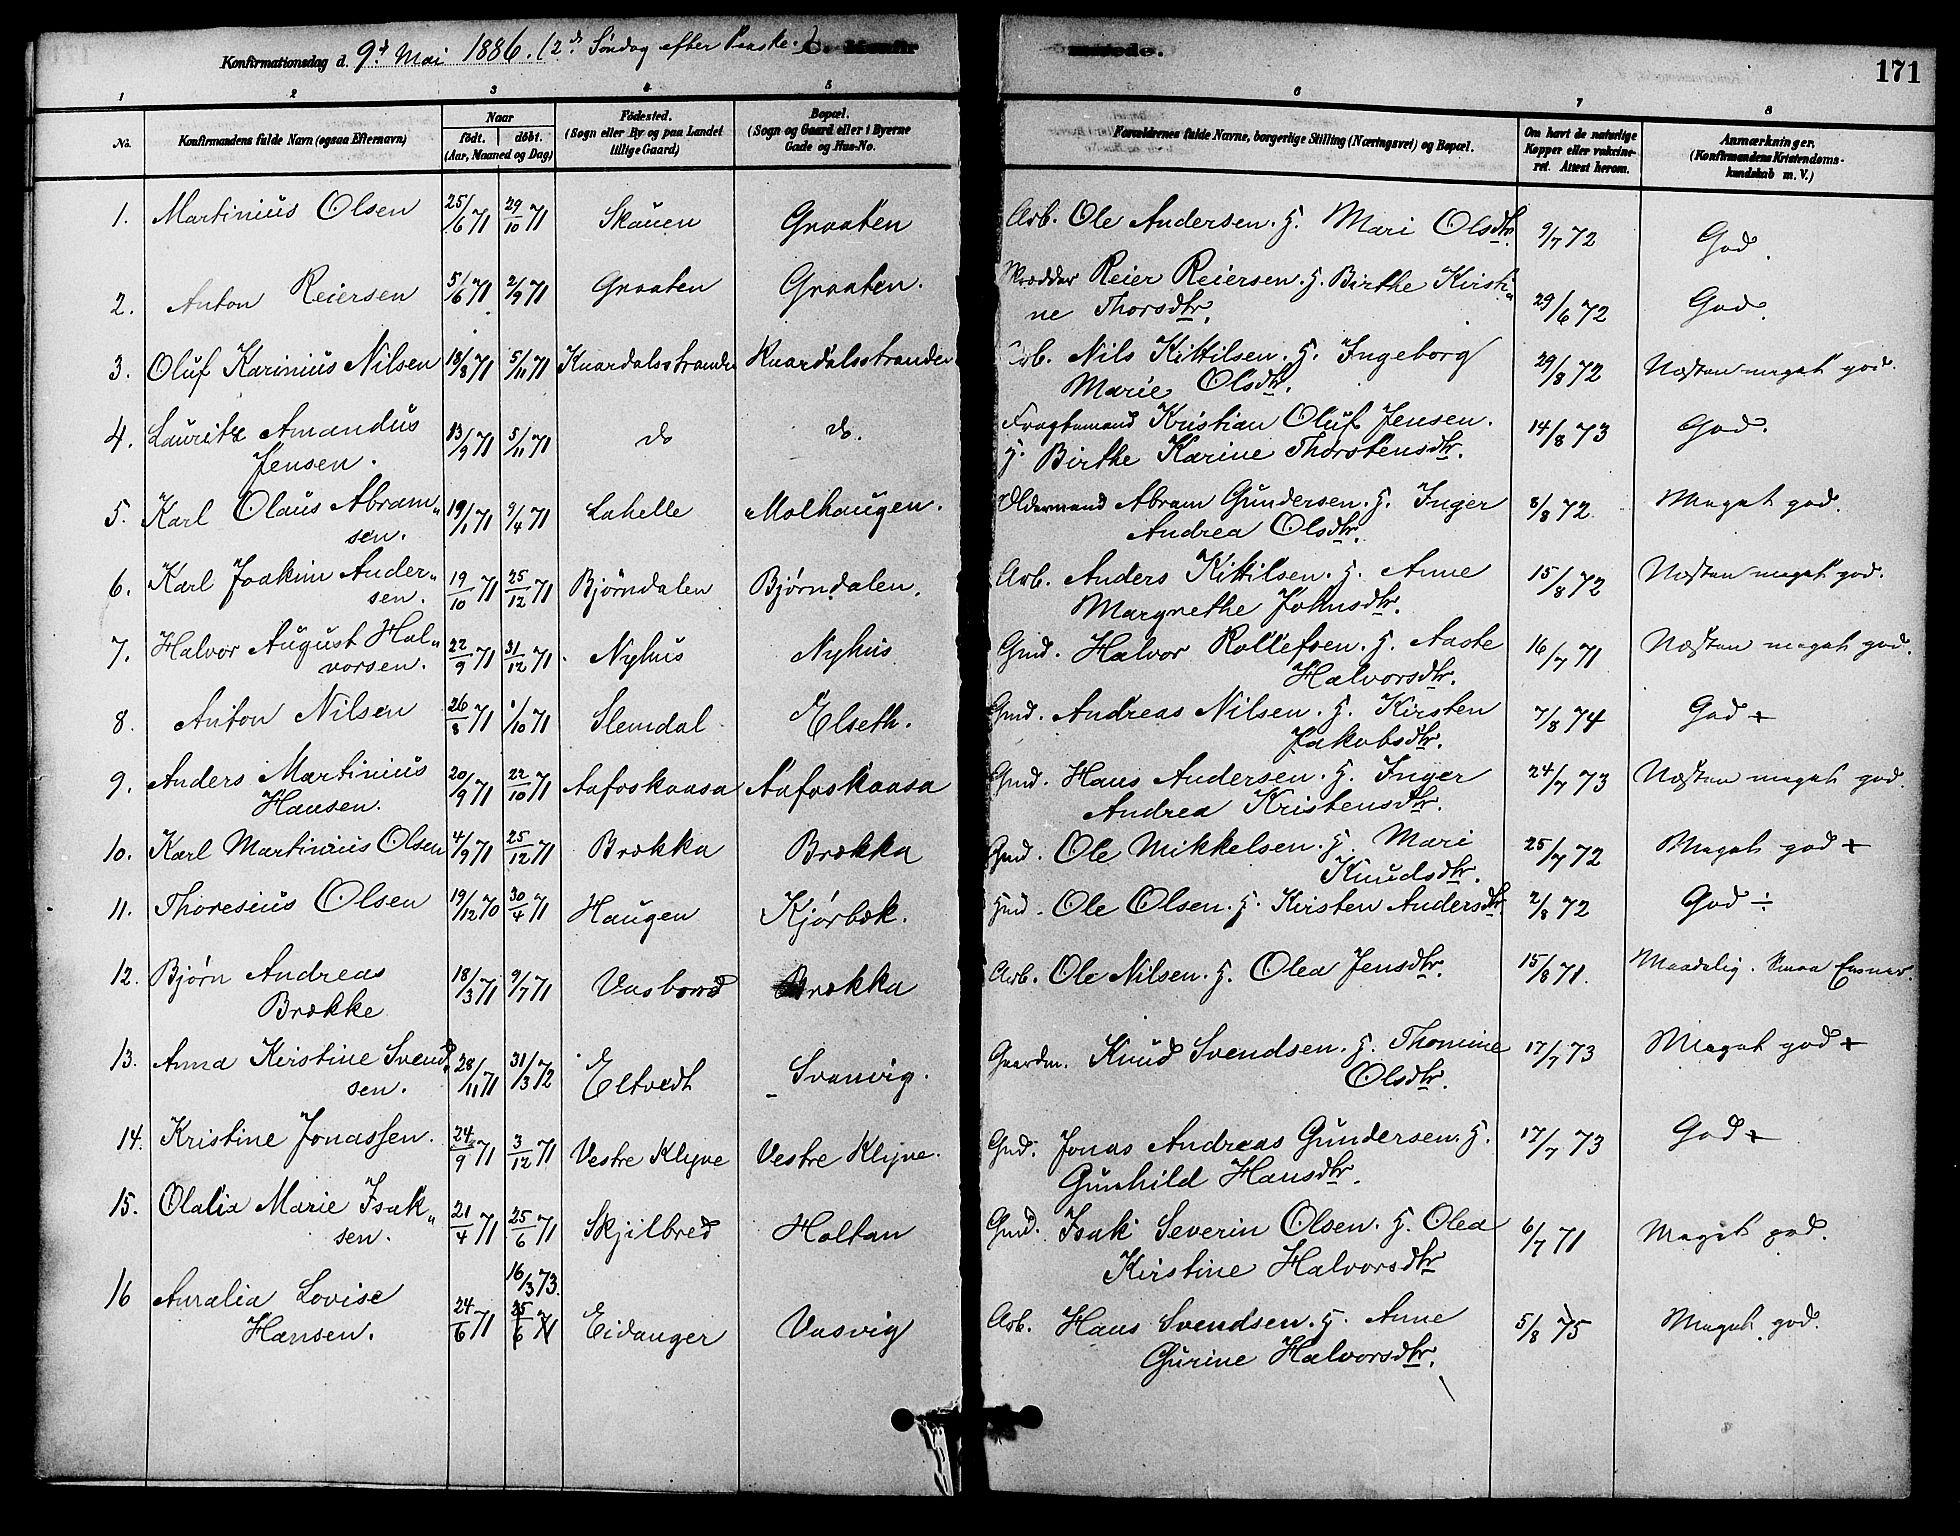 Konfirmationsdag d. 9d Mai 1886. (2d Søndag efter Paaske.) C. Konfirmerede. 171
1 2 3 4 5 6 7 8
No. Konfirmandens fulde Navn (ogsaa Efternavn) Naar født. døbt. (Aar, Maaned og Dag) Fødested. (Sogn eller By og paa Landet tillige Gaard) Bopæl. (Sogn og Gaard eller i Byerne Gade og Hus-No. Forældrenes fulde Navne, borgerlige Stilling (Næringsvei) og Bopæl. Om havt de naturlige Kopper eller vakcineret. Attest herom. Anmærkninger. (Konfirmandens Kristendomskundskab m. V.)
1. Martinius Olsen 25/6 71 29/10 71 Skauen Graaten Arb. Ole Andersen. H. Mari Olsdtr. 9/7 72 God.
2. Anton Reiersen 5/6 71 2/9 71 Graaten Graaten. Skrædder Reier Reiersen. H. Birthe Kirsti„
ne Thorsdtr. 29/6 72 God.
3. Oluf Karinius Nilsen 13/8 71 5/11 71 Knardalsstranden Knardalsstranden Arb. Nils Kittilsen. H. Ingeborg
Marie Olsdtr. 29/8 72 Næsten meget god.
4. Lauritz Amandus
Jensen. 13/9 71 5/11 71 do do. Fragtemand Kristian Oluf Jensen.
H. Birthe Karine Thorstensdtr. 14/8 73 God.
5. Karl Olaus Abram„
sen. 19/1 71 9/4 71 Lahelle Molhaugen. Oldermand Abram Gundersen. H. Inger
Andrea Olsdtr. 8/8 72. Meget god.
6. Karl Joakim Ander„
sen. 19/10 71 25/12 71 Bjørndalen Bjørndalen. Arb. Anders Kittilsen. H. Anne
Margrethe Johnsdtr. 15/8 72 Næsten meget god.
7. Halvor August Hal„
vorsen. 22/9 71 31/12 71. Nyhus Nyhus Gmd. Halvor Rollefsen. H. Aaste
Halvorsdtr. 16/7 71 Næsten meget god.
8. Anton Nilsen 26/8 71 1/10 71 Slemdal Elseth. Gmd. Andreas Nilsen. H. Kirsten
Jakobsdtr. 7/8 74 God +
9. Anders Martinius
Hansen. 20/9 71 22/10 71 Aafoskaasa Aafoskaasa Gmd. Hans Andersen. H. Inger
Andrea Kristensdtr. 24/7 73 Næsten meget god.
10. Karl Martinius Olsen 4/9 71 25/12 71 Brække Brække Gmd. Ole Mikkelsen. H. Mari
Knudsdtr. 25/7 72 Meget god +
11. Thoresius Olsen 19/12 70 30/4 71 Haugen Kjørbæk. Hmd. Ole Olsen. H. Kirsten Andersdtr. 2/8 72 God ÷
12. Bjørn Andreas
Brække 18/3 71 9/7 71 Vasbond Brække Arb. Ole Nilsen. H. Olea Jensdtr. 15/8 71. Maadelig. Smaa Evner.
13. Anna Kirstine Svend„
sen. 28/11 71 31/3 72 Eltvedt Svanvig. Gaardm. Knud Svendsen. H. Thomine
Olsdtr. 17/7 73 Meget god +
14. Kristine Jonassen. 24/9 71 3/12 71 Vestre Klyve Vestre Klyve. Gmd. Jonas Andreas Gundersen. H.
Gunhild Hansdtr. 17/7 73 God +
15. Olalia Marie Isak„
sen. 21/4 71 25/6 71 Skjilbred Holtan Gmd. Isak Severin Olsen. H. Olea
Kirstine Halvorsdtr 6/7 71 Meget god.
16 Auralia Lovise
Hansen. 24/6 71 16/3 73. 25/6 71 Eidanger Vasvig Arb. Hans Svendsen. H. Anne
Gurine Halvorsdtr. 5/8 75 Meget god.